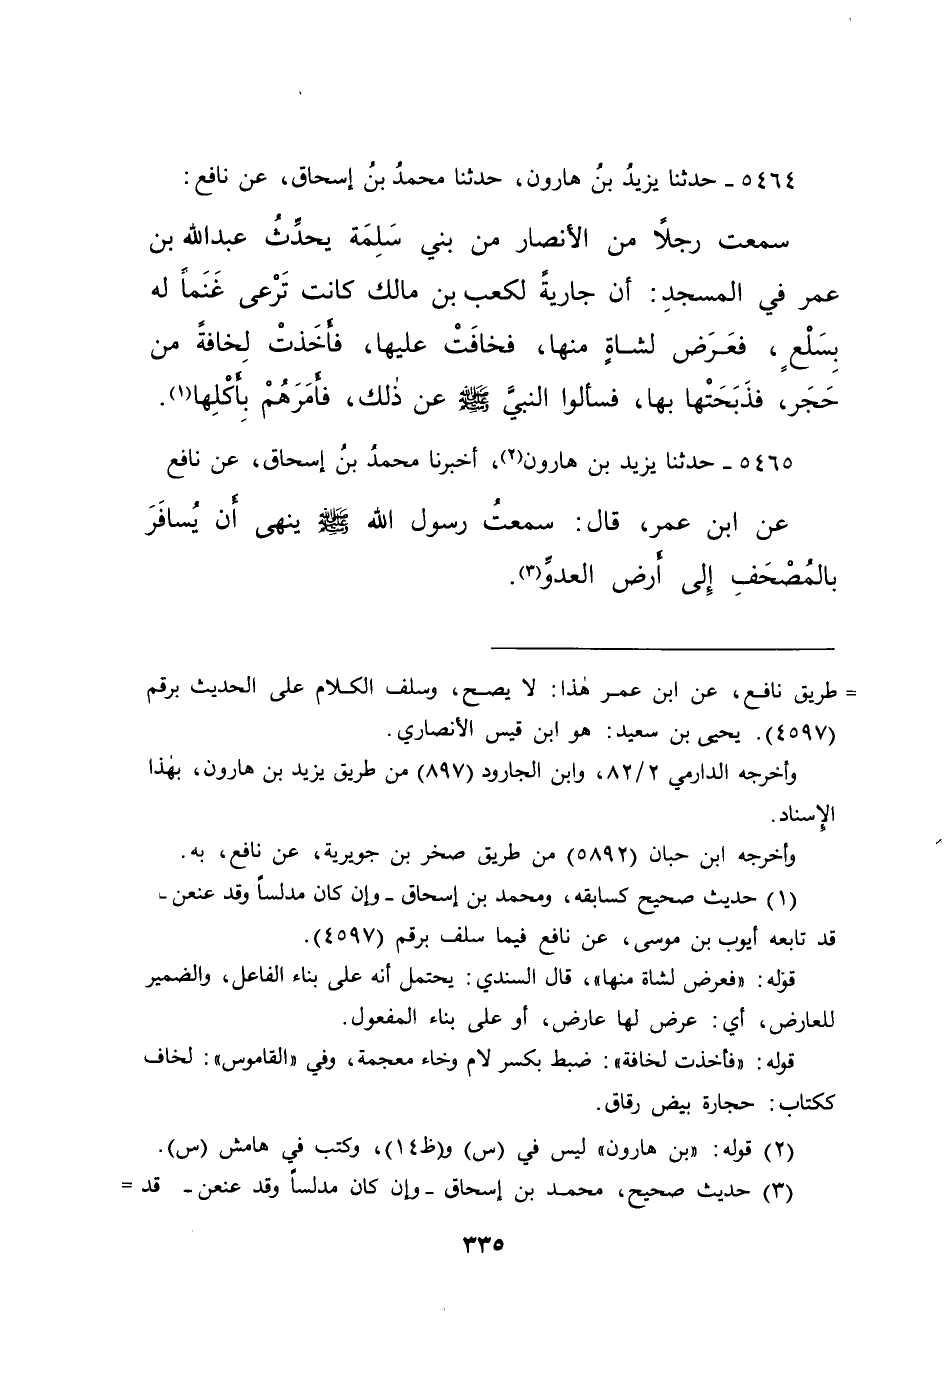 ٥٤٦٤ ـ حدثنا يزيدُ بنُ هارون، حدثنا محمدُ بنُ إسحاق، عن نافع:
سمعت رجلًا من الأنصار من بني سَلِمَة يحدِّثُ عبدالله بن
عمر في المسجدِ: أن جاريةً لكعب بن مالك كانت تَرْعى غَنَماً له
بِسَلْعٍ، فعَـرَض لشـاةٍ منها، فخافَتْ عليها، فأَخَذتْ لِخافةً من
حَجَر، فذَبَحَتْها بها، فسألوا النبيَّ ﷺ عن ذٰلك، فأمَرَهُمْ بِأَكْلِها(١).
٥٤٦٥ ـ حدثنا يزيد بن هارون(٢)، أخبرنا محمدُ بنُ إسحاق، عن نافع
عن ابن عمر، قال: سمعتُ رسول الله ﷺ ينهى أَن يُسافَرَ
بالمُصْحَفِ إِلى أَرض العدوِّ(٣).
= طريق نافـع، عن ابن عمـر هٰذا: لا يصـح، وسلف الكـلام على الحديث برقم
(٤٥٩٧). يحيى بن سعيد: هو ابن قيس الأنصاري.
وأخرجه الدارمي ٨٢/٢، وابن الجارود (٨٩٧) من طريق يزيد بن هارون، بهٰذا
الإِسناد.
وأخرجه ابن حبان (٥٨٩٢) من طريق صخر بن جويرية، عن نافع، به.
(١) حديث صحيح كسابقه، ومحمد بن إسحاق ـ وإن كان مدلساً وقد عنعن ـ
قد تابعه أيوب بن موسى، عن نافع فيما سلف برقم (٤٥٩٧).
قوله: «فعرض لشاة منها»، قال السندي: يحتمل أنه على بناء الفاعل، والضمير
للعارض، أي: عرض لها عارض، أو على بناء المفعول.
قوله: «فأخذت لخافة»: ضبط بكسر لام وخاء معجمة، وفي «القاموس»: لخاف
ككتاب: حجارة بيض رقاق.
(٢) قوله: «بن هارون» ليس في (س) و(ظ١٤)، وكتب في هامش (س).
(٣) حديث صحيح، محمـد بن إسحاق ـ وإن كان مدلساً وقد عنعن ـ قد =
٣٣٥